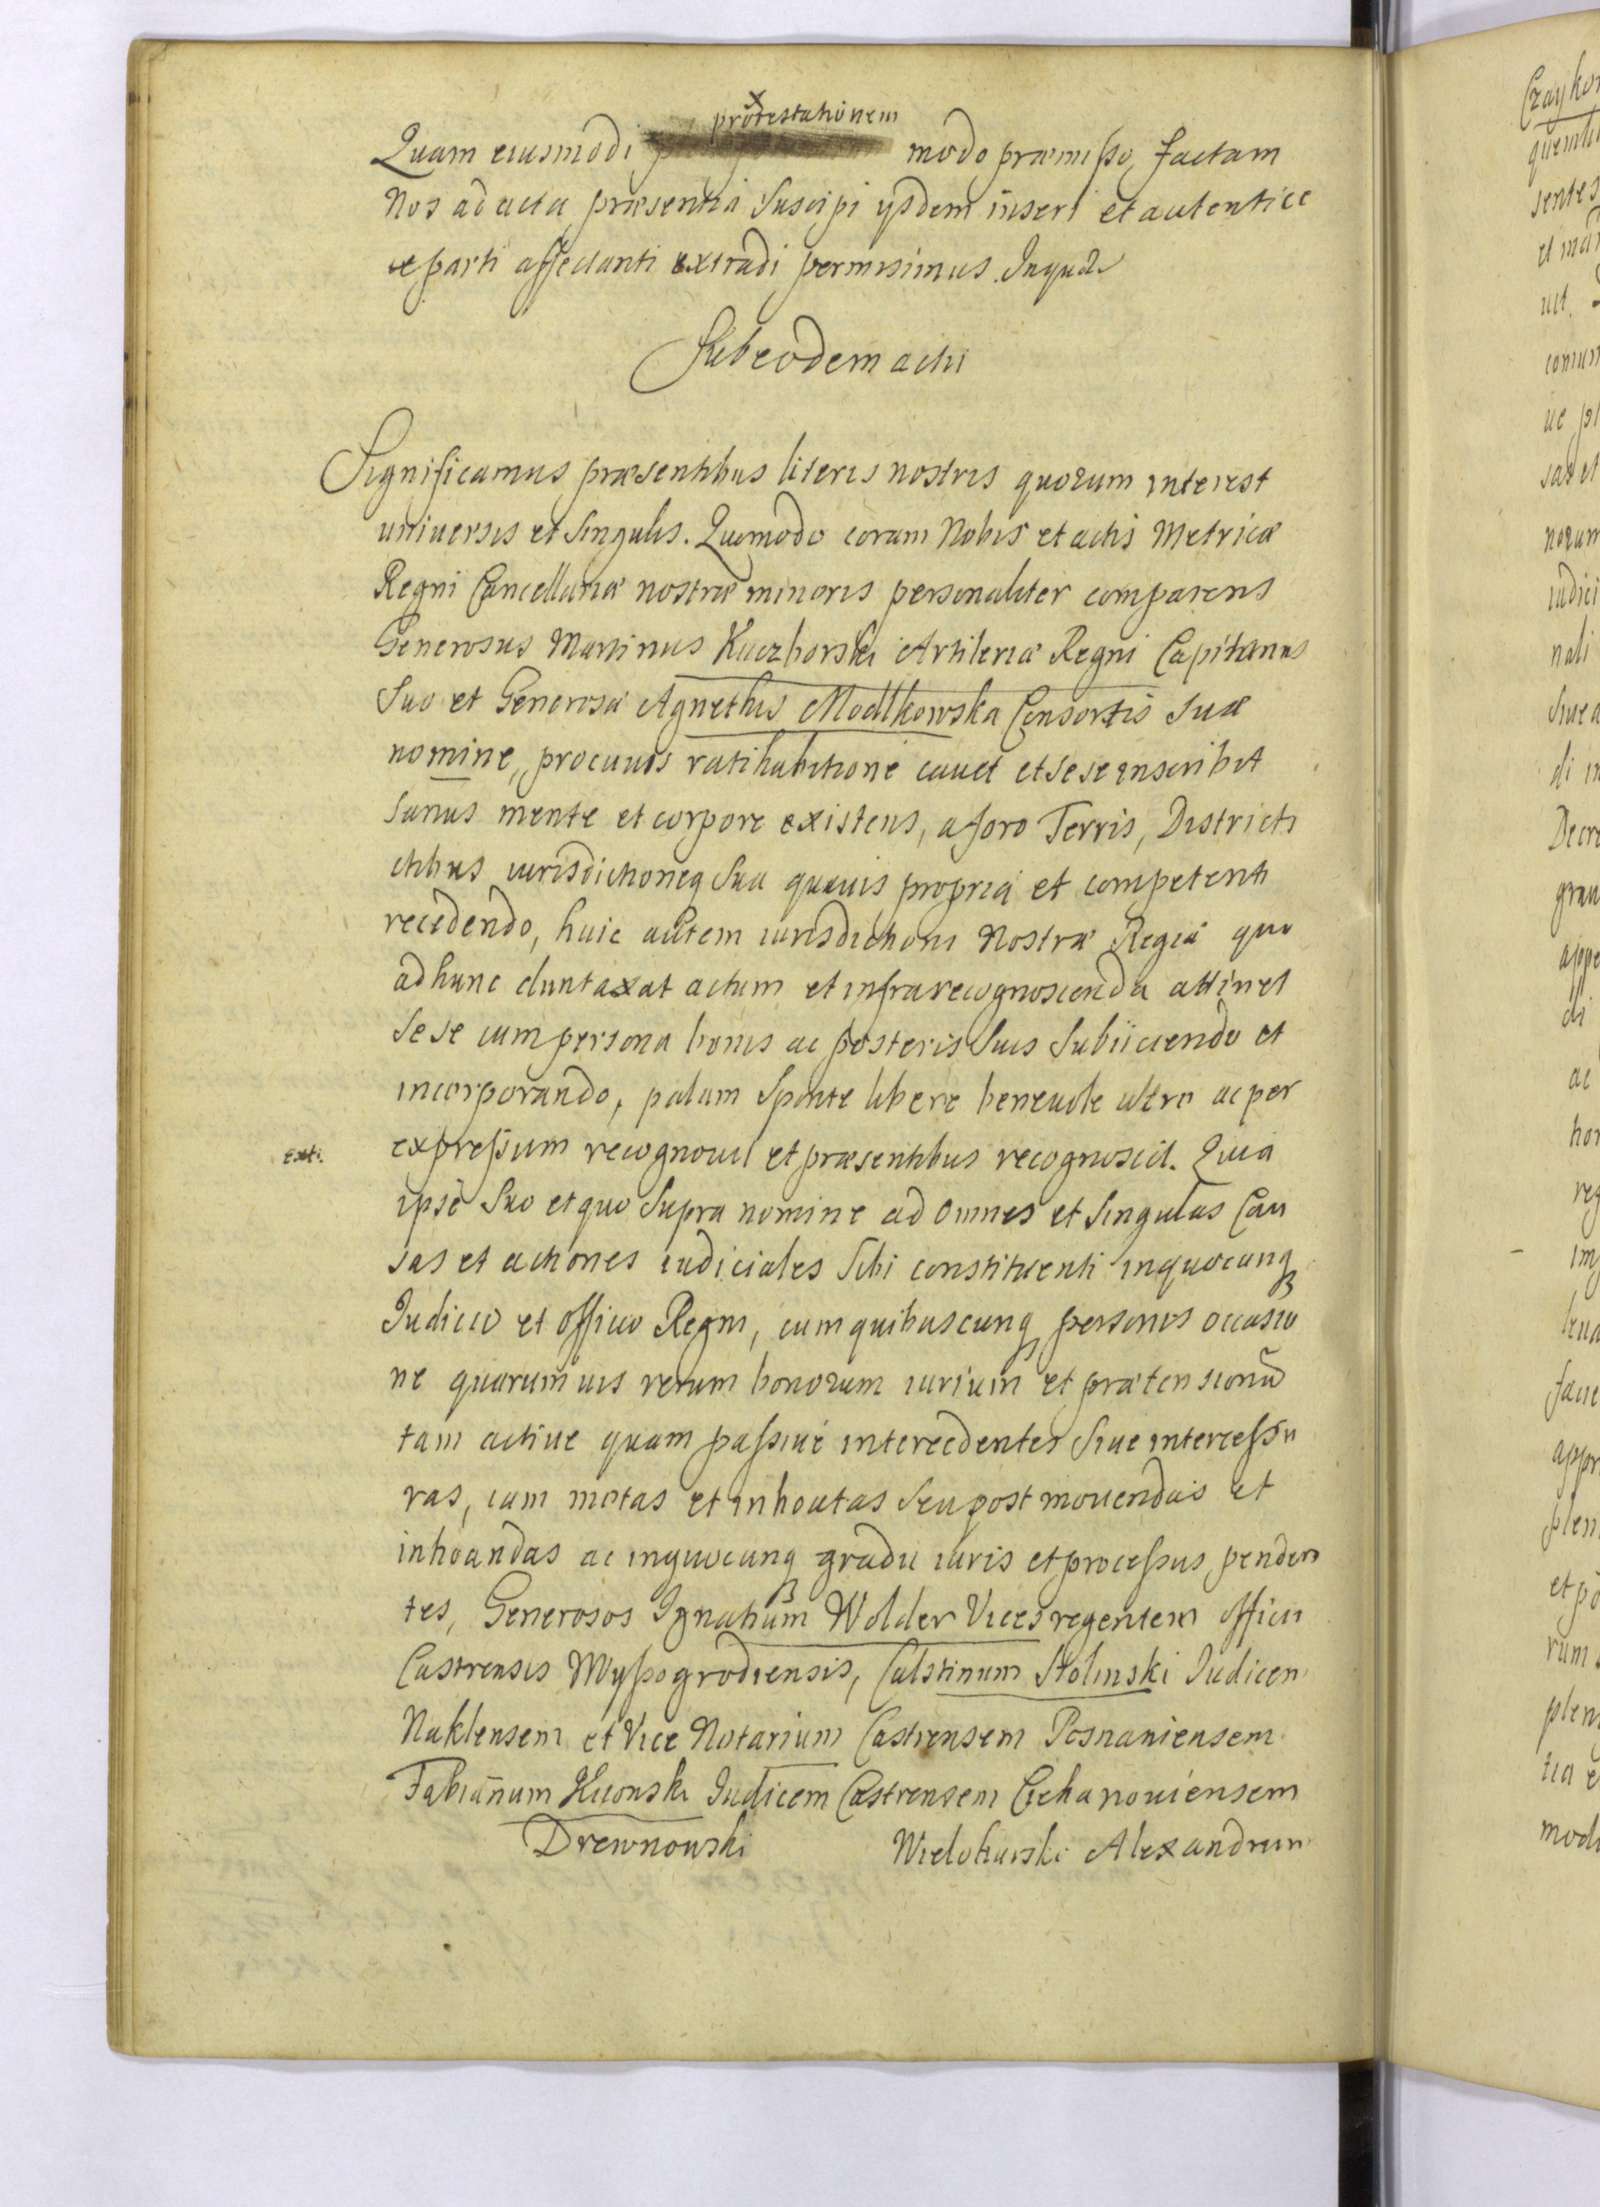 protestationem
Quam eiusmodi modo præmisso factam
Nos ad acta præsentia suscipi ysdem inseri et autentice
parti affectanti extradi permisimus. In quor
Sub eodem actu
Significamus præsentibus literis nostris quorum interest
universis et singulis. Quomodo coram Nobis et actis Metricæ
Regni Cancellariæ nostræ minoris personaliter comparens
Generosus Martinus Kuczborski Artileriæ Regni Capitanus
Suo et Generosæ Agnethis Modlkowska Consortis suæ
nomine, pro cuius ratihabitione cavet et sese inscribit
Sanus mente et corpore existens, a foro Terris, Districti
ctibus iurisdictioneq sua quavis propria et competenti
recedendo, huic autem iurisdictioni Nostræ Regiæ quo
ad hunc duntaxat actum et infrarecognoscenda attinet
Sese cum persona bonis ac posteris suis subiiciendo et
incorporando, palam sponte libere benevole ultro ac per
exti.
expressum recognovit et præsentibus recognoscit. Quia
ipse suo et quo supra nomine ad omnes et singulas Cau
sas et actiones iudiciales sibi constituenti in quocunq
Iudicio et officio Regni, cum quibuscunq personis occasio
ne quarumvis rerum bonorum iurium et prætensionũ
tam active quam passive intercedentes sive intercessu
ras, iam motas et inhoatas seu post movendas et
inhoandas ac in quocunq gradu iuris et processus penden
tes, Generosos Ignatium Wolder Vicesregentem officii
Castrensis Wyssogrodiensis, Calstinum Stolinski Iudicem
Naklensem et Vice Notarium Castrensem Posnaniensem
Fabianum Iudicem Castrensem Ciehanoviensem
Drewnowski Wielohurski Alexandrum